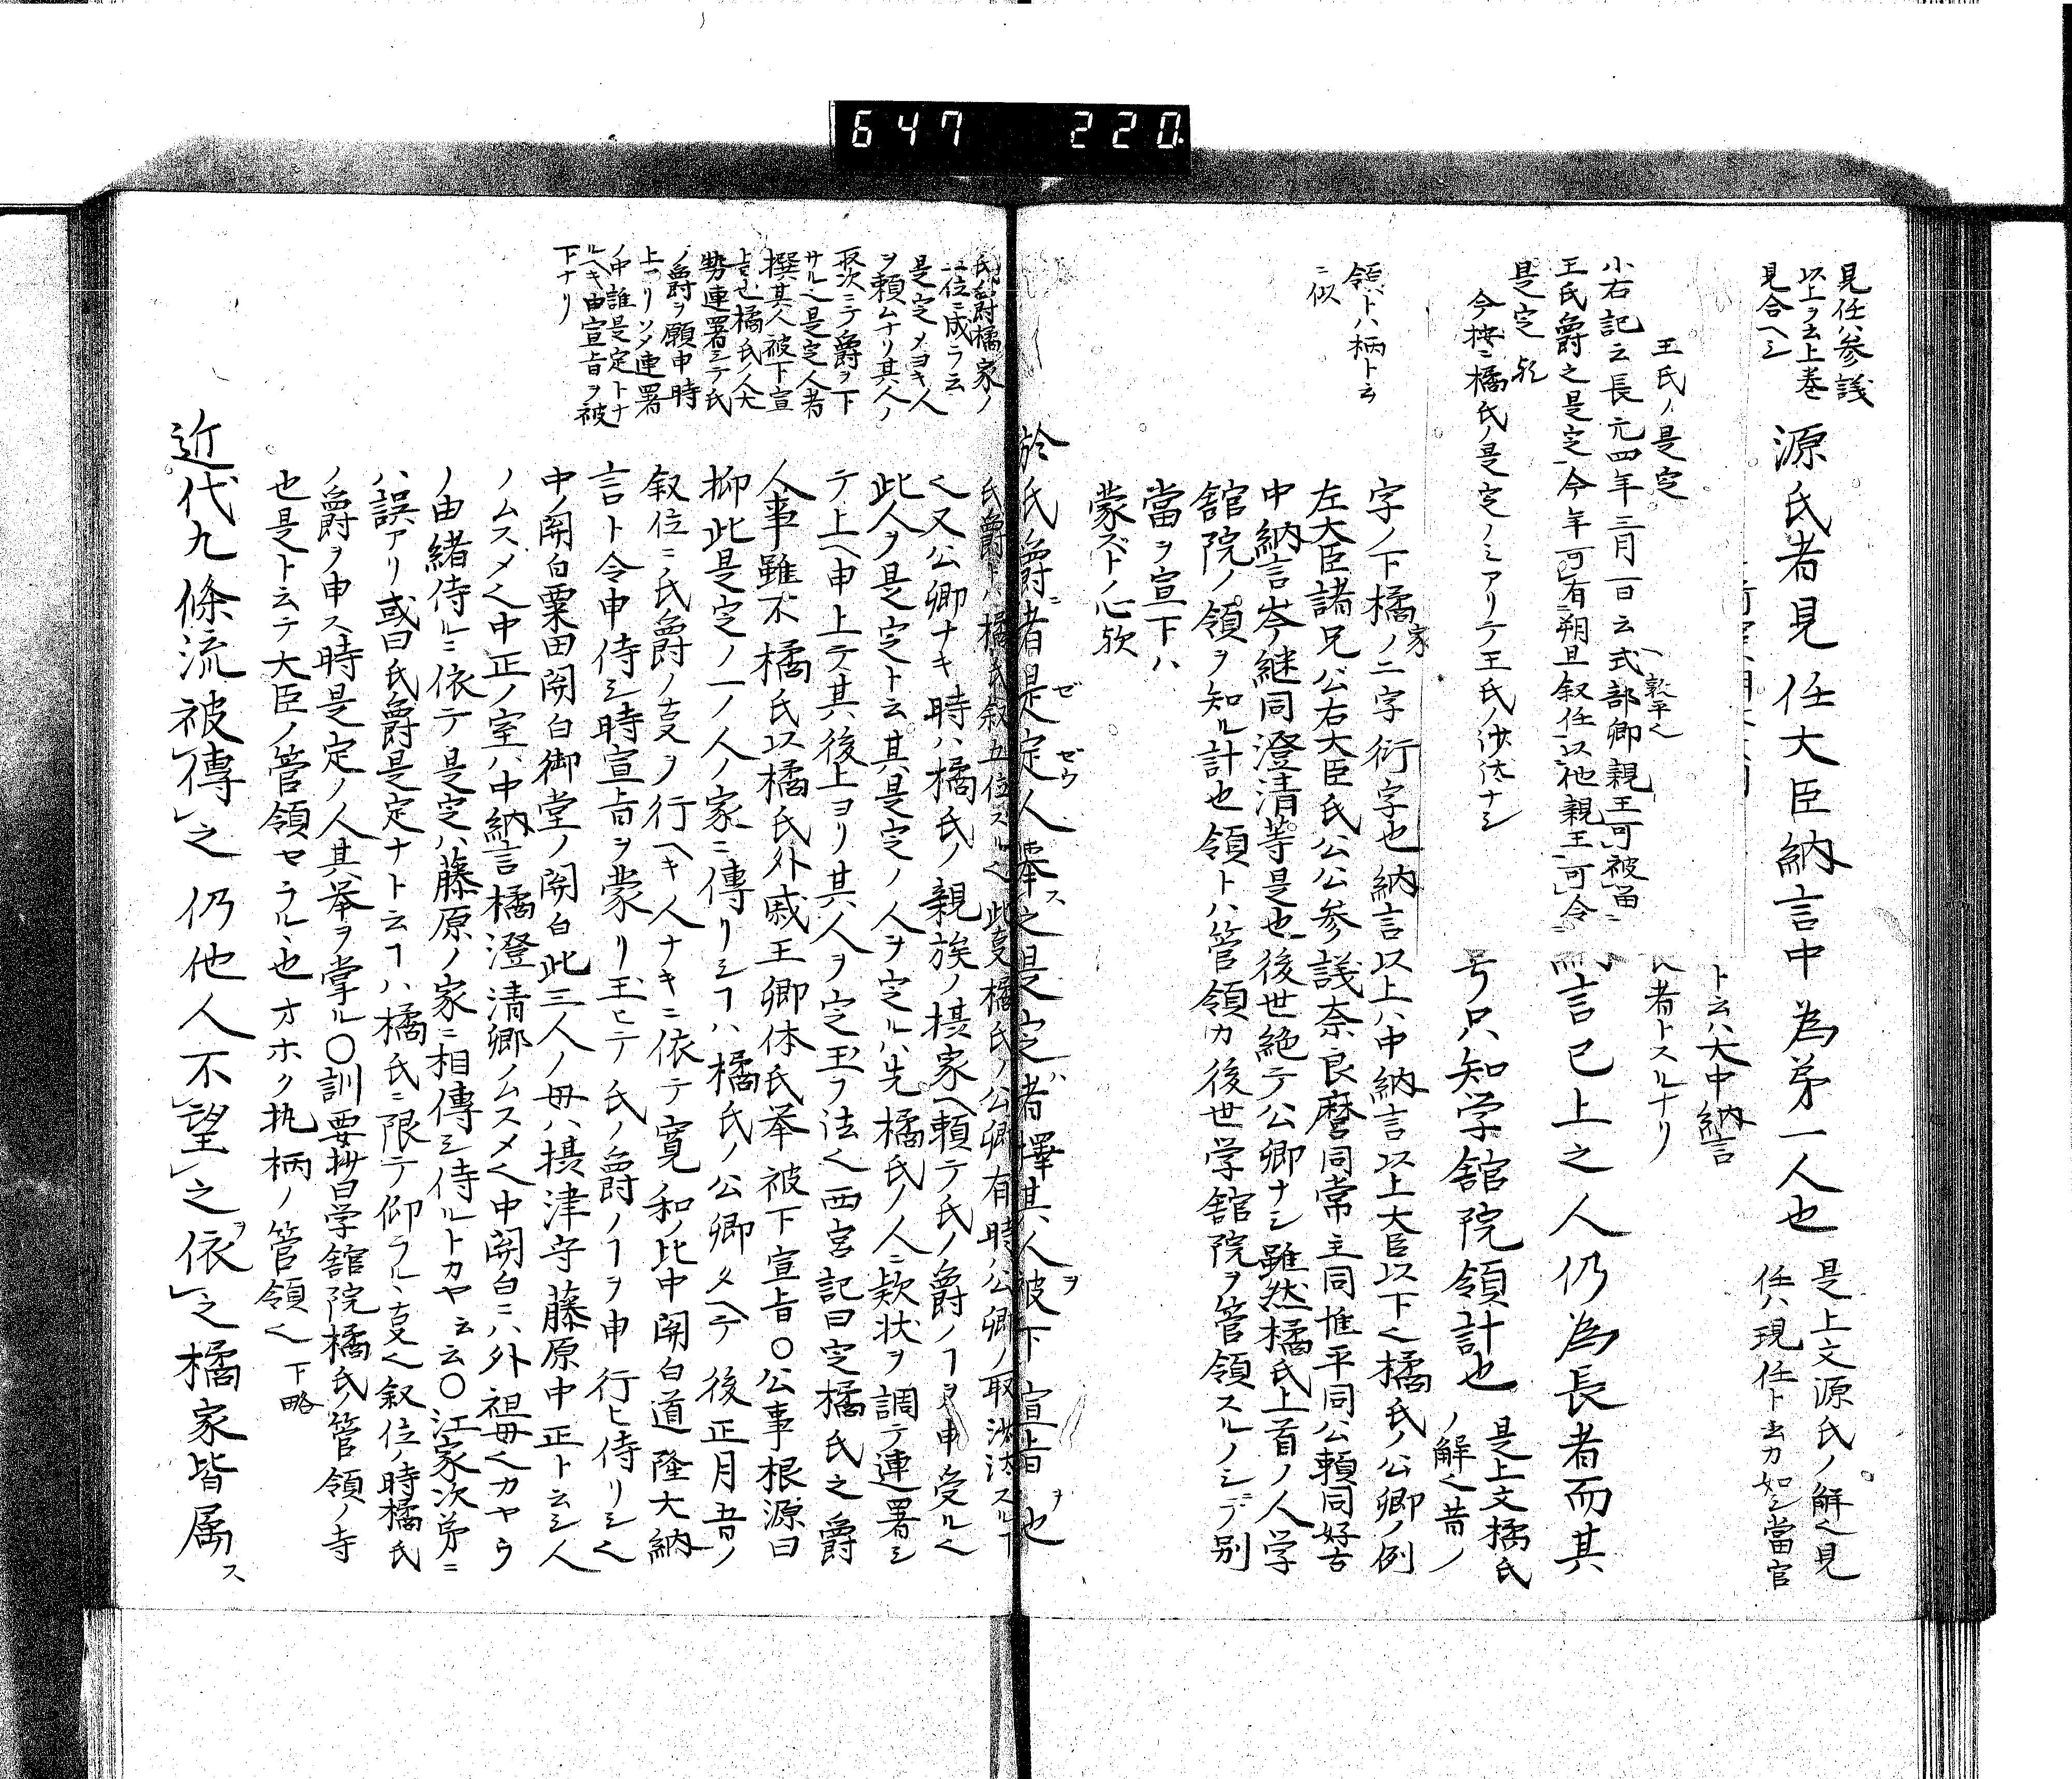 647 220
見任ハ参議
以上ヲ云上巻
見合ヘシ
源氏者見任大臣納言中為第一人也
是上文源氏ノ解〱見
任ハ現任ト云カ如シ當官
ト云ハ大中納言
氏者トスルナリ
王氏ノ是定
小右記云長元四年三月一日云式部卿親王可被當ニ
敦平〱
王氏爵之是定今年可有朔旦叙任以他親王可令
是定欤
今按ニ橘氏ノ是定ノミアリテ王氏ノ沙汰ナシ
言已上之人仍為長者而其
号只知学舘院領計也
是上文橘氏
ノ解〱昔ノ
領ハ柄ト云
ニ似
字ノ下橘家ノ二字衍字也納言以上ハ中納言以上大臣以下〱橘氏ノ公卿ノ例
左大臣諸兄公右大臣氏公公参議奈良麿同常主同惟平同公頼同好古
中納言岑継同澄清等是也後世絶テ公卿ナシ雖然橘氏上首ノ人学
舘院ノ領ヲ知ル計也領トハ管領カ後世学舘院ヲ管領スルノミニテ別
當ヲ宣下ハ
蒙ズトノ心欤
於氏ノ爵ニ者是定人挙ス之是定ハ者擇其人ヲ被下宣旨ヲ也
ゼ ゼウ
氏爵トハ橘氏叙五位スル〱此㕝橘氏ノ公卿有時ハ公卿ノ取沙汰スルヿ
〱又公卿ナキ時ハ橘氏ノ親族ノ摂家ヘ頼テ氏ノ爵ノヿヲ申受ル〱
此人ヲ是定ト云其是定ノ人ヲ定ルハ先橘氏ノ人ニ欵状ヲ調テ連署シ
テ上ヘ申上テ其後上ヨリ其人ヲ定玉フ法〱西宮記曰定橘氏之爵
人事雖不橘氏以橘氏外戚王卿体氏挙被下宣旨〇公事根源曰
抑此是定ノ一ノ人ノ家ニ傳リシヿハ橘氏ノ公卿タヘテ後正月五日ノ
叙位ニノ氏爵ノ㕝ヲ行ヘキ人ナキニ依テ寛和ノ比中関白道隆大納
言ト令申侍シ時宣旨ヲ蒙リ玉ヒテ氏ノ爵ノヿヲ申行ヒ侍リシ〱
中ノ関白粟田関白御堂ノ関白此三人ノ母ハ摂津守藤原中正ト云シ人
ノムスメ〱中正ノ室ハ中納言橘澄清卿ノムスメ〱中関白ニハ外祖母〱カヤウ
ノ由緒侍ルニ依テ是定ハ藤原ノ家ニ相傳シ侍ルトカヤ云云〇江家次第ニ
ハ誤アリ或曰氏爵是定ナト云ヿハ橘氏ニ限テ仰ラルヽ㕝〱叙位ノ時橘氏
ノ爵ヲ申ス時是定ノ人其挙ヲ掌ル〇訓要抄曰学舘院橘氏ノ管領ノ寺
也是ト云テ大臣ノ管領セラルヽ也オホク執柄ノ管領〱下略
氏爵橘家ノ
二位ニ成ラ云
是定メヨキ人
ヲ頼ムナリ其人ノ
取次ニテ爵ヲ下
サル〱是定人者
撰其人被下宣
上セ也橘氏ノ人大
勢連署シテ氏
ノ爵ヲ願申時
上ヨリソノ連署
ノ中誰是定トナ
ルヘキ由宣旨ヲ被
下ナリ
近代九條流被傳之仍他人不望之依ヲ之橘家皆属ス